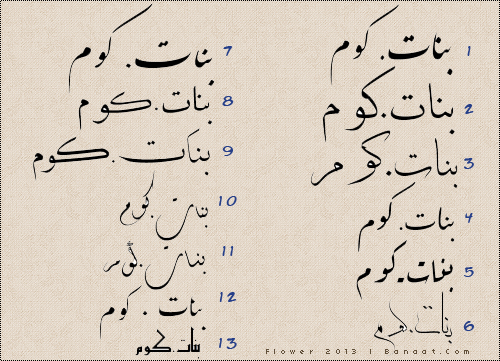 بنات.كوم 1
بنات.كوم 2
بنات.كوم 3
بنات.كوم 4
بنات.كوم 5
بنات.كوم 6
بنات.كوم 7
بنات.كوم 8
بنات.كوم 9
بنات.كوم 10
بنات.كوم 11
بنات.كوم 12
بنات.كوم 13
Flower 2013 | Banaat.Com